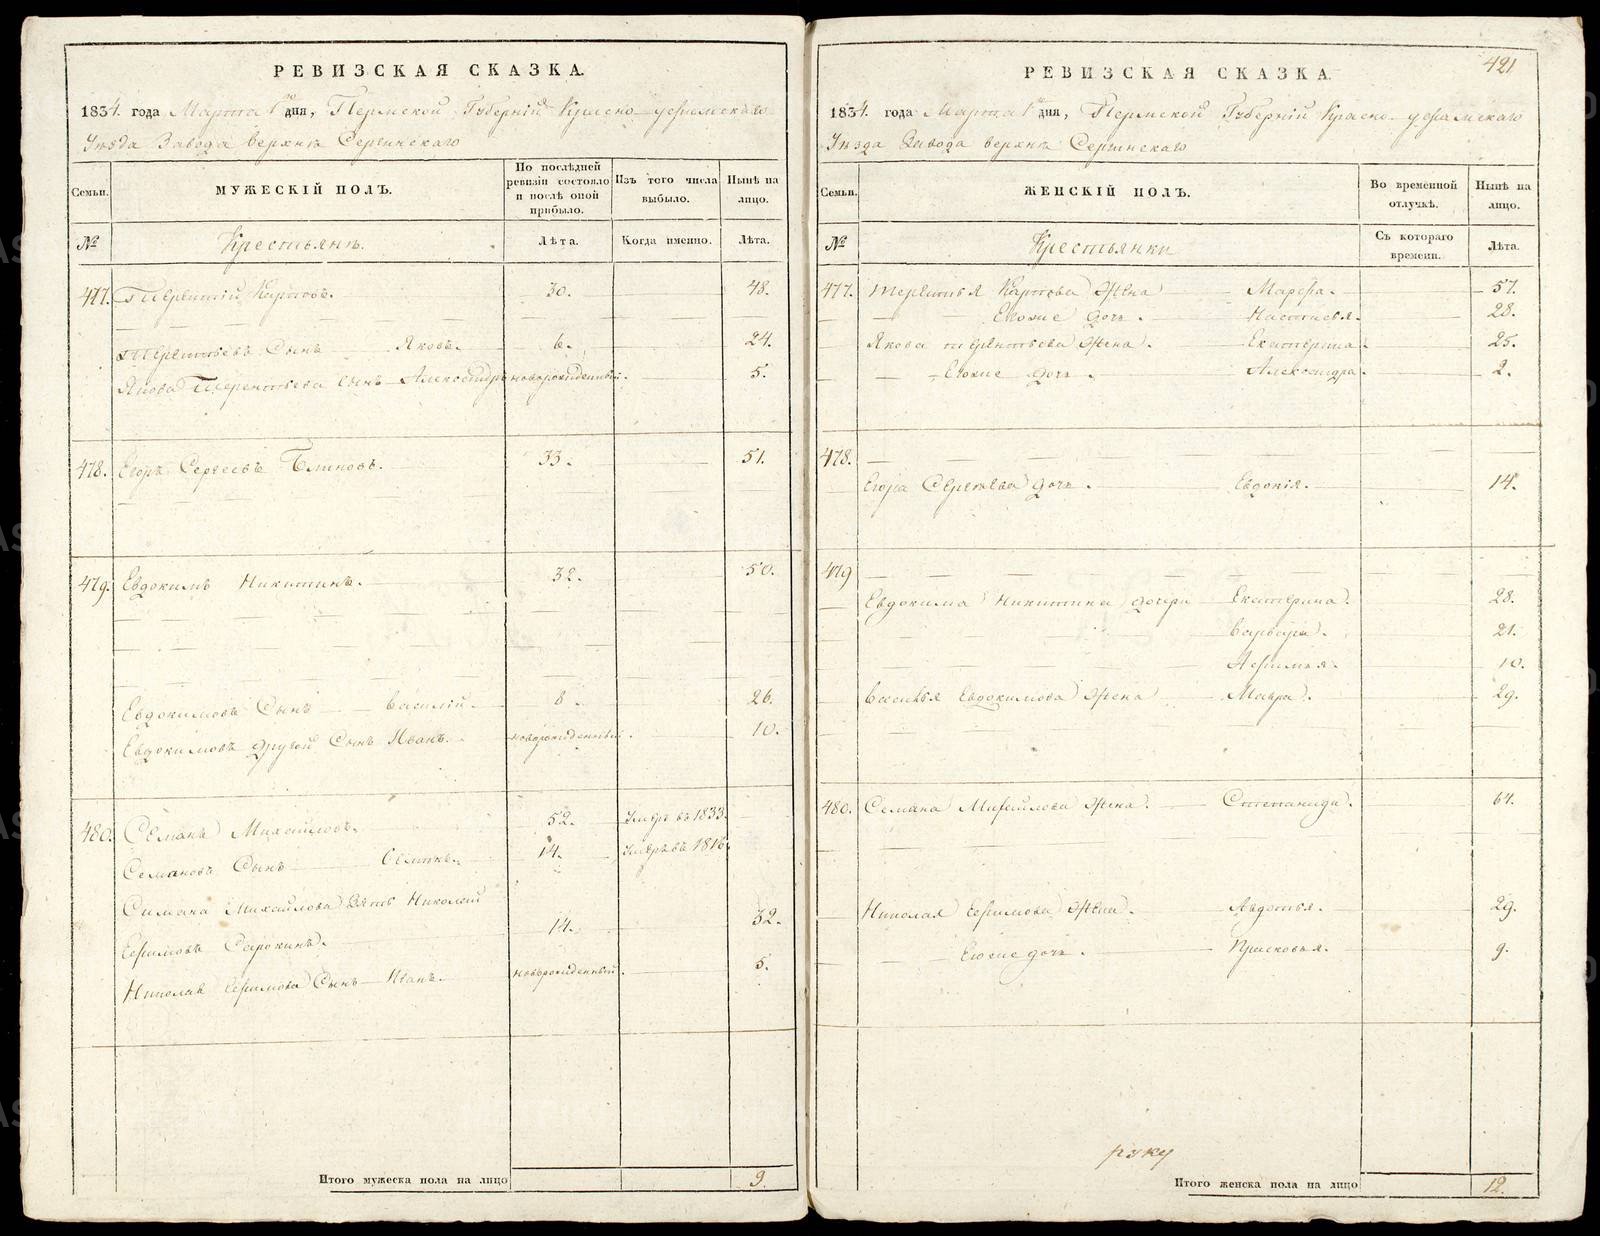 РЕВИЗСКАЯ СКАЗКА.
1834 года Марта 1го дня, Пермской Губерніи Красно-уфимскаго
Уѣзда Завода верхнѣ Сергинскаго
Семьи.
МУЖЕСКІЙ ПОЛЪ.
По послѣдней ревизіи состояло и послѣ оной прибыло.
Изъ того числа выбыло.
Нынѣ на лицо.
№
Крестьянѣ.
Лѣта.
Когда именно.
Лѣта.
477. Терентій Карповъ. 30. 48.
Терентьевъ Сынъ Яковъ. 6. 24.
Якова Терентьева сынъ Александръ новорожденный. 5.
478. Егоръ Сергеевъ Блиновъ. 33. 51.
479. Евдокимъ Никитинъ. 32. 50.
Евдокимовъ Сынъ Василій. 8. 26.
Евдокимовъ другой Сынъ Иванъ. новорожденный. 10.
480. Семанъ Михайловъ. 52. Умеръ въ 1833.
Семановъ Сынъ 14. Умеръ въ 1816.
Симана Михайлова Зять Николай
Ефимовъ Сорокинъ. 14. 32.
Николая Ефимова Сынъ Иванъ. новорожденный. 5.
Итого мужеска пола на лицо 9.
421
РЕВИЗСКАЯ СКАЗКА.
1834. года Марта 1го дня, Пермской Губерніи Красно-уфимскаго
Уѣзда Завода верхнѣ Сергинскаго
Семьи.
ЖЕНСКІЙ ПОЛЪ.
Во временной отлучкѣ.
Нынѣ на лицо.
№
Крестьянки
Съ котораго времени.
Лѣта.
477. Терентья Карпова Жена Марфа. 57.
Егоже дочь. Настасья. 28.
Якова терентьева Жена. Екатерина. 25.
Егоже дочь. Александра. 2.
478.
Егора Сергеева дочь. Евдокія. 14.
479
Евдокима Никитина дочери Екатерина. 28.
Варвара. 21.
Афимья. 10.
Василья Евдокимова Жена Мавра. 29.
480. Семана Михайлова Жена. Степанида. 64.
Николая Ефимова Жена. Авдотья. 29.
Егоже дочь. Прасковья. 9.
руку
Итого женска пола на лицо 12.